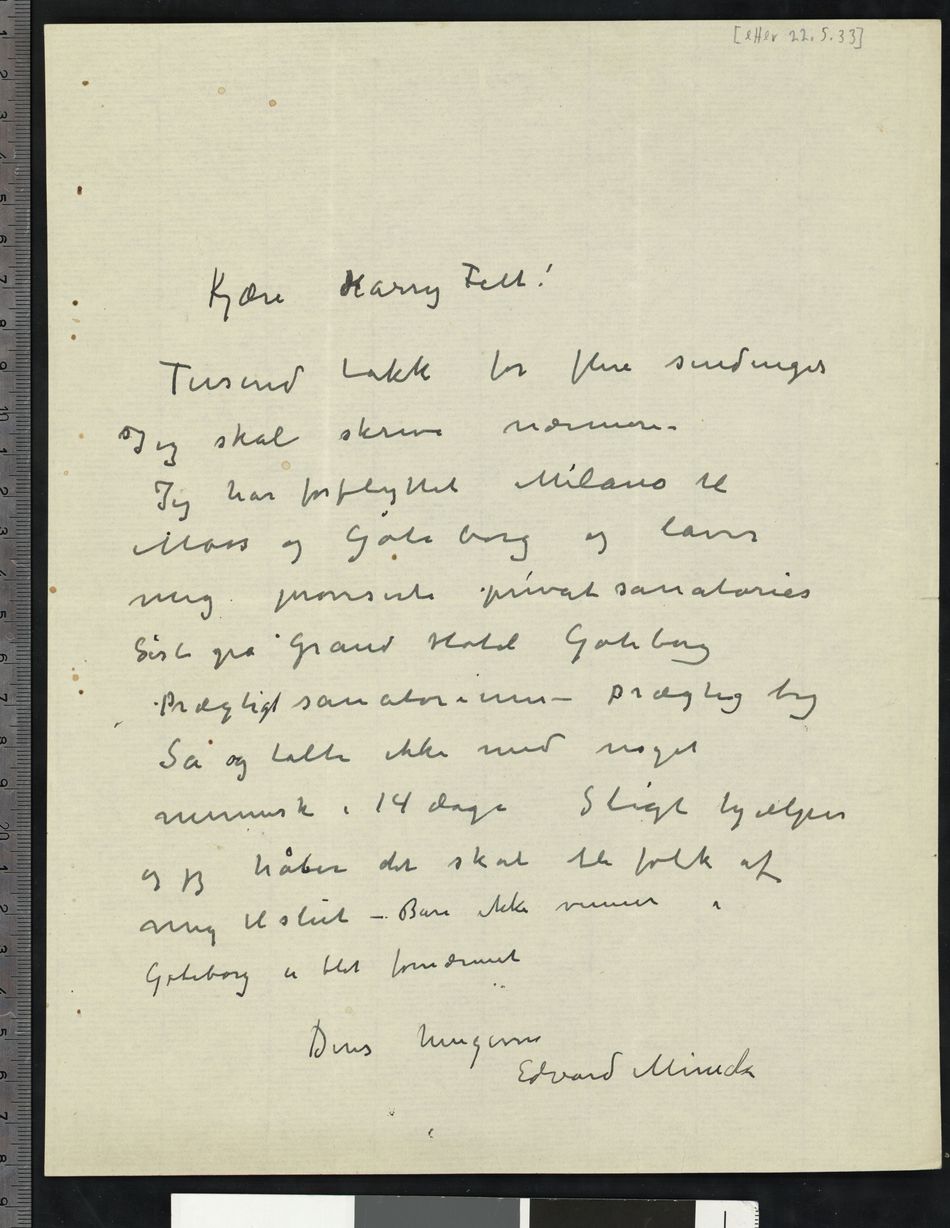 [etter 22.5.33]
Kjære Harry Fett!
Tusend takk for flere sendinger
Jeg skal skrive nærmere.
Jeg har forflyttet Milano til
Moss og Göteborg og laver
mig provisoriske privat sanatorier
Sist på Grand Hotel Göteborg
Prægtigt sanatorium – prægtig by
Så og talte ikke med noget
menneske i 14 dage Sligt hjælper
og jeg håber det skal bli folk af
mig til slut – Bare ikke venner i
Göteborg er blet fornærmet
Deres hengivne
Edvard Munch